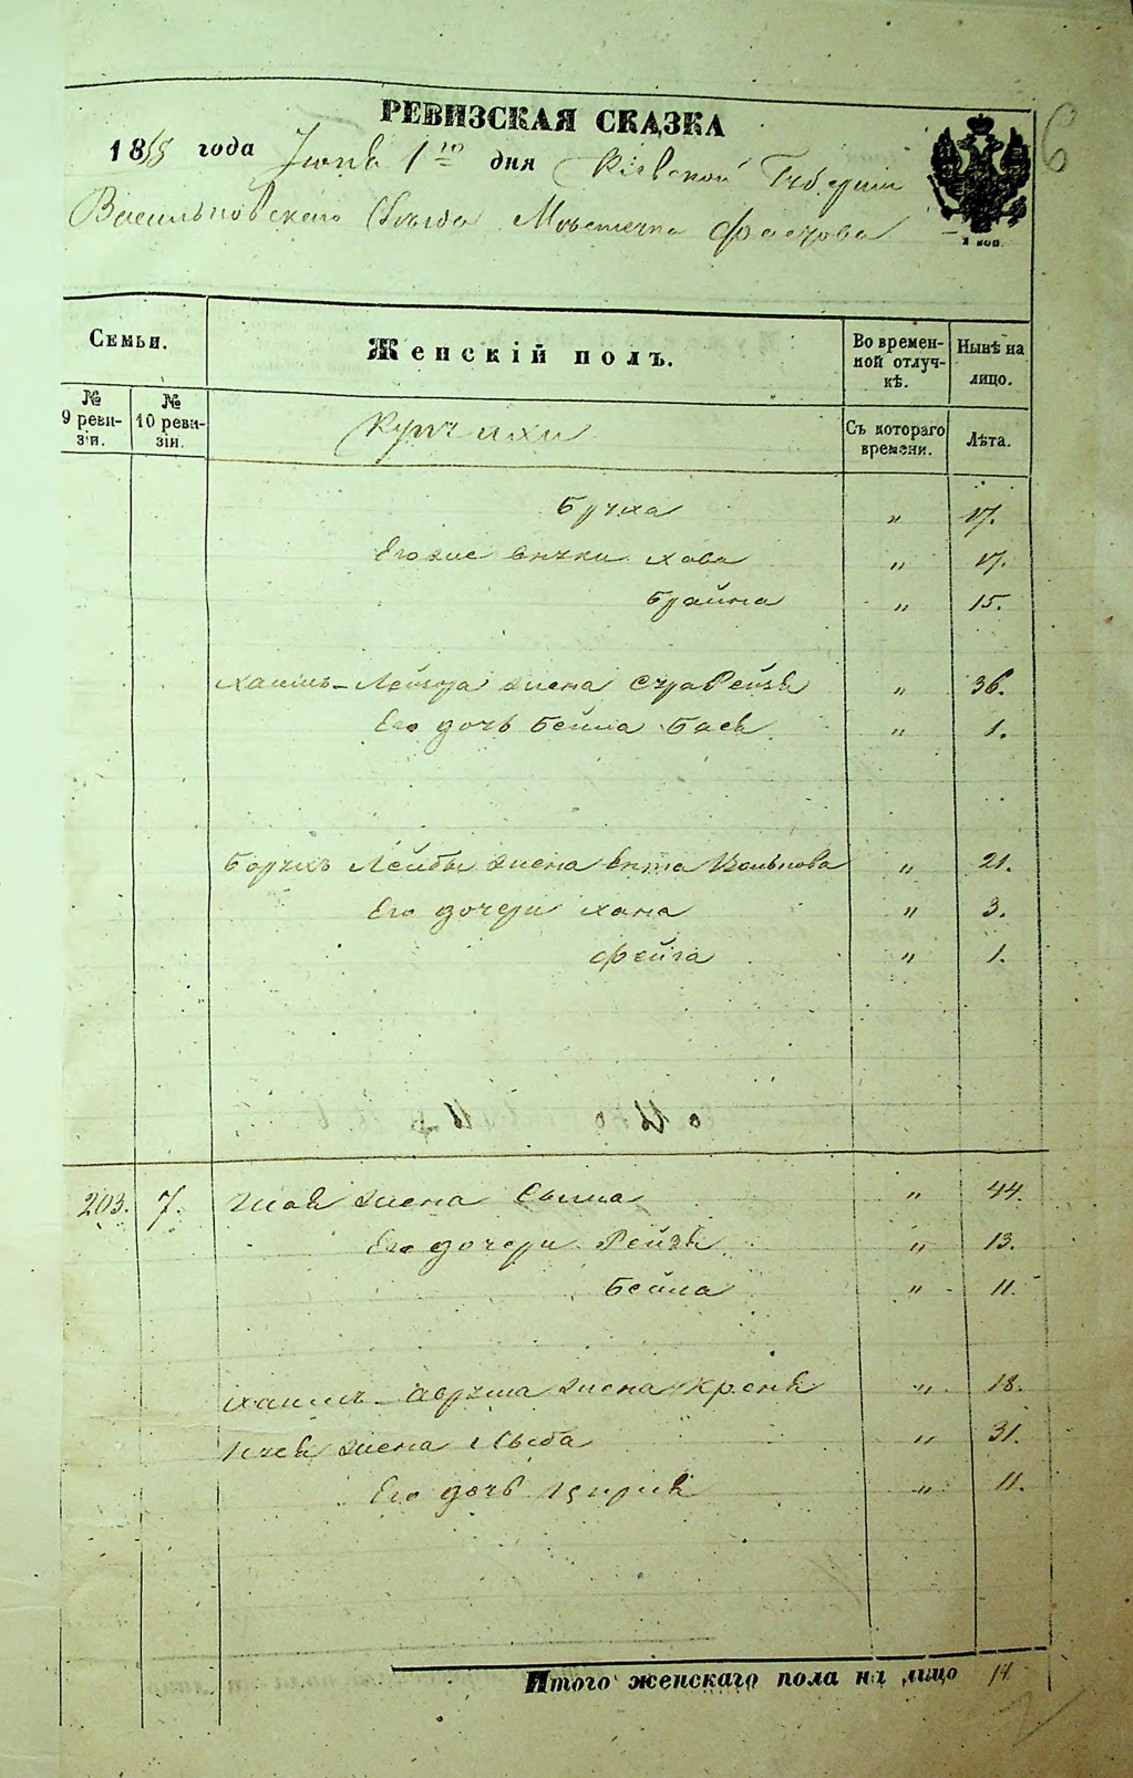 6
РЕВИЗСКАЯ СКАЗКА
1858 года Іюня 1го дня Кіевской Губерніи
Васильковскаго Уѣзда Мѣстечка Фастова
1 коп.
Семьи.
Женскій полъ.
Во времен-
ной отлуч-
кѣ.
Нынѣ на
лицо.
№
9 реви-
зіи.
№
10 реви-
зіи.
Купчихи
Съ котораго
времени.
Лѣта.
Бруха " 17.
Его же внуки Хава " 17.
Брайна " 15.
Хаимъ-Лейзера жена Сура Рейзя " 36.
Его дочь Бейла Бася " 1.
Борухъ Лейбы жена Ента Волькова " 21.
Его дочери Хана " 3.
Фейга " 1.
203. 7. жена " 44.
Его дочери Рейзя " 13.
Бейла " 11.
Хаимъ-Аврума жена Креня " 18.
жена Лыба " 31.
Его дочь Цирля " 11.
Итого женскаго пола на лицо 14